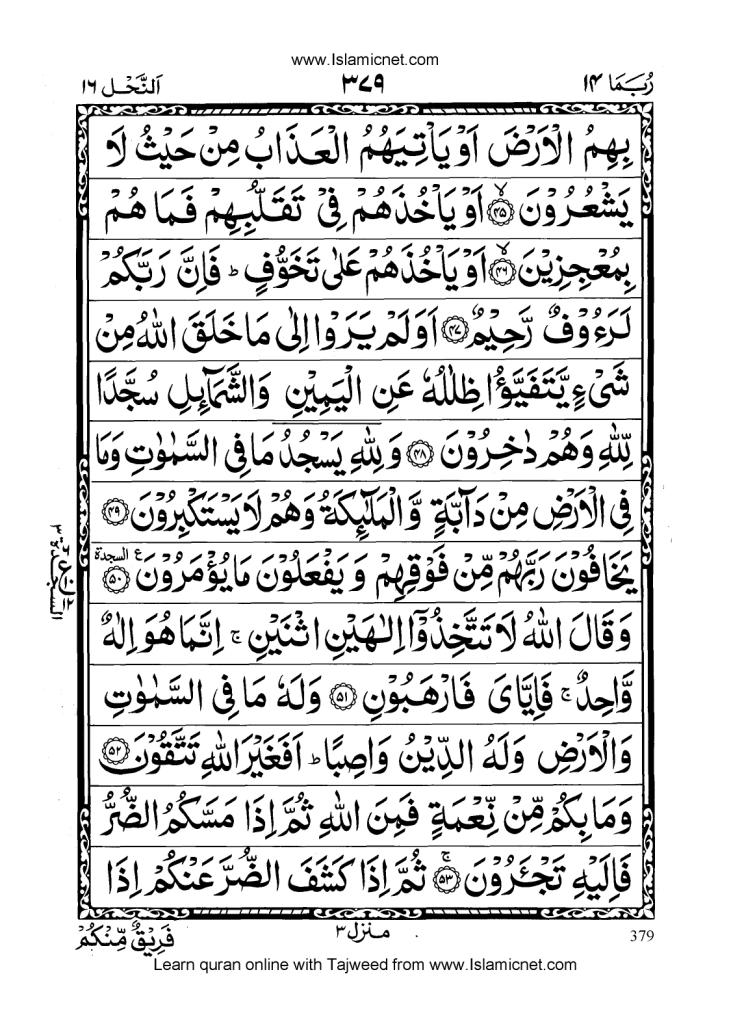 www.Islamicnet.com
رُبَمَا ١٤ ٣٧٩ اَلنَّحْل ١٦
بِهِمُ الْاَرْضَ اَوْ يَاْتِيَهُمُ الْعَذَابُ مِنْ حَيْثُ لَا
يَشْعُرُوْنَ ۙ‏﴿۴۵﴾ اَوْ يَاْخُذَهُمْ فِيْ تَقَلُّبِهِمْ فَمَا هُمْ
بِمُعْجِزِيْنَ ۙ‏﴿۴۶﴾ اَوْ يَاْخُذَهُمْ عَلٰى تَخَوُّفٍ ؕ فَاِنَّ رَبَّكُمْ
لَرَءُوْفٌ رَّحِيْمٌ ﴿۴۷﴾ اَوَلَمْ يَرَوْا اِلٰى مَا خَلَقَ اللّٰهُ مِنْ
شَيْءٍ يَّتَفَيَّؤُا ظِلٰلُهٗ عَنِ الْيَمِيْنِ وَالشَّمَآئِلِ سُجَّدًا
لِّلّٰهِ وَهُمْ دٰخِرُوْنَ ﴿۴۸﴾ وَلِلّٰهِ يَسْجُدُ مَا فِي السَّمٰوٰتِ وَمَا
فِي الْاَرْضِ مِنْ دَآبَّةٍ وَّالْمَلٰٓئِكَةُ وَهُمْ لَا يَسْتَكْبِرُوْنَ ﴿۴۹﴾
يَخَافُوْنَ رَبَّهُمْ مِّنْ فَوْقِهِمْ وَيَفْعَلُوْنَ مَا يُؤْمَرُوْنَ ﴿۵۰﴾ ع السجدة
السجدة ٣
وَقَالَ اللّٰهُ لَا تَتَّخِذُوْٓا اِلٰهَيْنِ اثْنَيْنِ ۚ اِنَّمَا هُوَ اِلٰهٌ
وَّاحِدٌ ۚ فَاِيَّايَ فَارْهَبُوْنِ ﴿۵۱﴾ وَلَهٗ مَا فِي السَّمٰوٰتِ
وَالْاَرْضِ وَلَهُ الدِّيْنُ وَاصِبًا ؕ اَفَغَيْرَ اللّٰهِ تَتَّقُوْنَ ﴿۵۲﴾
وَمَا بِكُمْ مِّنْ نِّعْمَةٍ فَمِنَ اللّٰهِ ثُمَّ اِذَا مَسَّكُمُ الضُّرُّ
فَاِلَيْهِ تَجْئَرُوْنَ ۚ‏﴿۵۳﴾ ثُمَّ اِذَا كَشَفَ الضُّرَّ عَنْكُمْ اِذَا
379 منزل ٣ فَرِيْقٌ مِّنْكُمْ
Learn quran online with Tajweed from www.Islamicnet.com